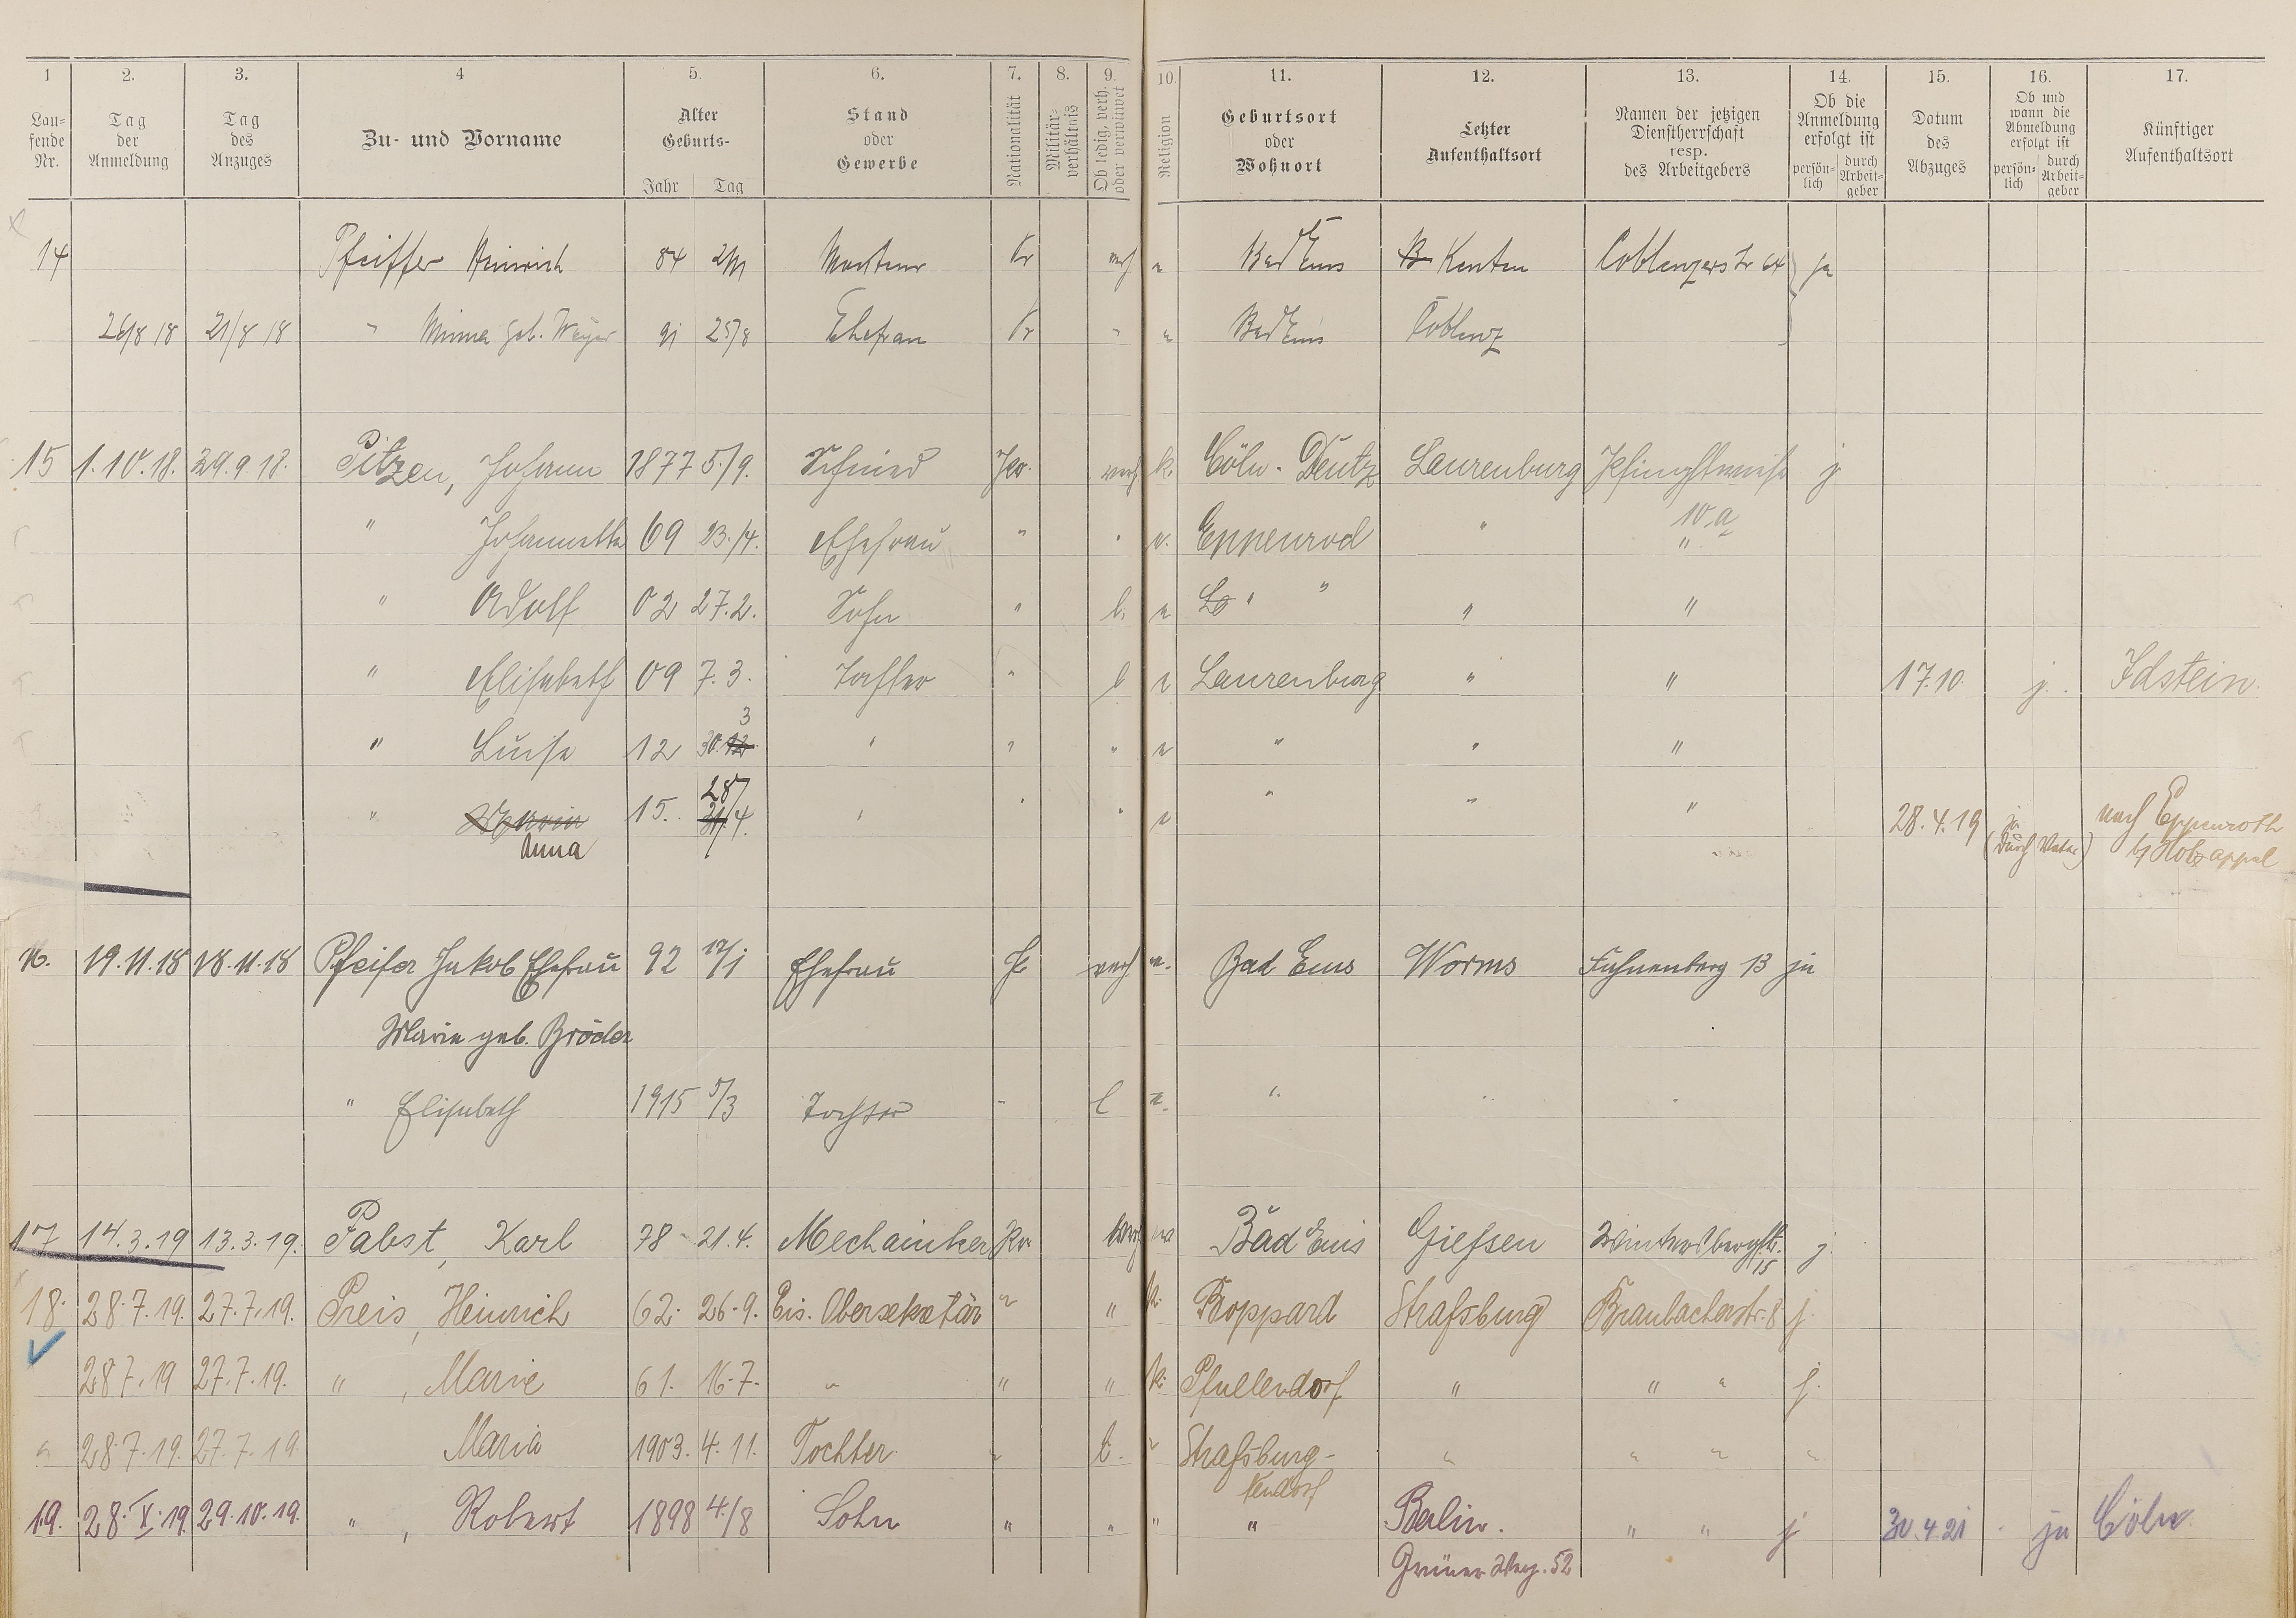 1 2. 3. 4 5. 6. 7. 8. 9. 10. 11. 12. 13. 14. 15. 16. 17.
Lau-
fende
Nr.
Tag
der
Anmeldung
Tag
des
Anzuges
Zu- und Vorname
Alter
Geburts-
Jahr Tag
Stand
oder
Gewerbe
Nationalität
Militär-
verhältnis
Ob ledig, verh.
oder verwitwet
Religion
Geburtsort
oder
Wohnort
Letzter
Aufenthaltsort
Namen der jetzigen
Dienstherrschaft
resp.
des Arbeitgebers
Ob die
Anmeldung
erfolgt ist
persön-
lich
durch
Arbeit-
geber
Datum
des
Abzuges
Ob und
wann die
Abmeldung
erfolgt ist
persön-
lich
durch
Arbeit-
geber
Künftiger
Aufenthaltsort
14 Pfeiffer Heinrich 84 Monteur Pr verh Bad Ems Kenten Coblenzerstr 64 ja
26/8 18 21/8 18 " Minna geb. 91 25/8 Ehefrau Pr " " Bad Ems Coblenz
15 1.10.18. 29.9.18. Pitzen, Johann 1877 5./9. Schmied Pr. verh. k. Cöln-Deutz Laurenburg Pfingstwiese j
" Johannetta 69 23./4. Ehefrau " " Eppenrod " 10 a
"
" Adolf 02 27.2. Sohn " l. " " "
" Elisabeth 09 7.3. Tochter " l Laurenburg " " 17.10. j. Idstein.
" Luise 12 30. 3 " " " " " "
" Anna 15. 28/4. " " " " " " 28.4.19 ja
(durch Vater) nach Eppenroth
b/ Holzappel
16. 19.11.18 18.11.18 Pfeifer Jakob Ehefrau 92 17/1 Ehefrau Pr verh Bad Ems Worms Fahnenberg 13 ja
Marie geb. Bröder
" Elisabeth 1915 5/3 Tochter " l " " "
17 14.3.19 13.3.19. Pabst, Karl 78 21.4. Mechainker Pr. verh Bad Ems Giefsen Wintersbergstr.
15 j.
18. 28.7.19. 27.7.19. Preis, Heinrich 62. 26.9. Eis. Obersekretär " " k. Boppard Strafsburg Braubacherstr. 8 j.
28.7.19 27.7.19. " , Marie 61. 16.7. " " " k. Pfullendorf " " " j.
28.7.19. 27.7.19. Maria 1903. 4.11. Tochter " l. " Strafsburg-
Neudorf " " " "
19. 28.X.19. 29.10.19. " , Robert 1898 4./8 Sohn " " " " Berlin. " " j 30.4.21 ja Cöln
Grüner Weg. 52